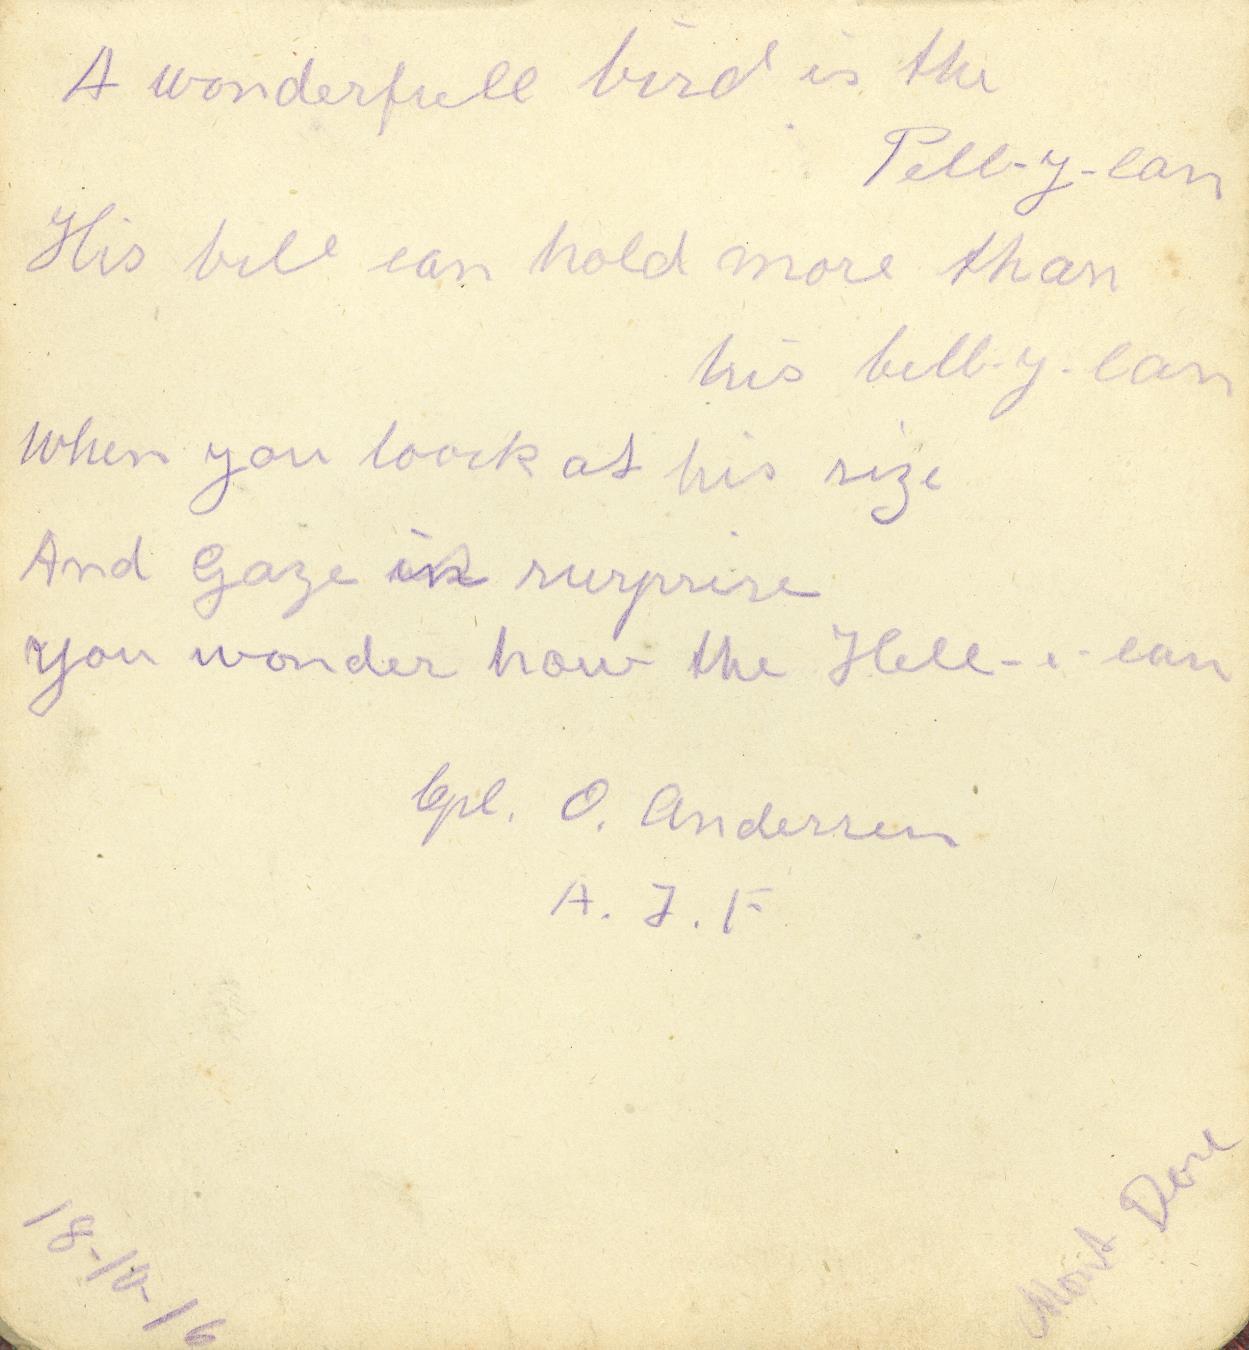 A wonderfull bird is the
Pell-y-can
His bill can hold more than
his bell-y-can
When you loock at his size
And Gaze in surprise
you wonder how the Hell-i-can
Cpl. O. Anderson
A. I. F
18-10-16
Mont Dore